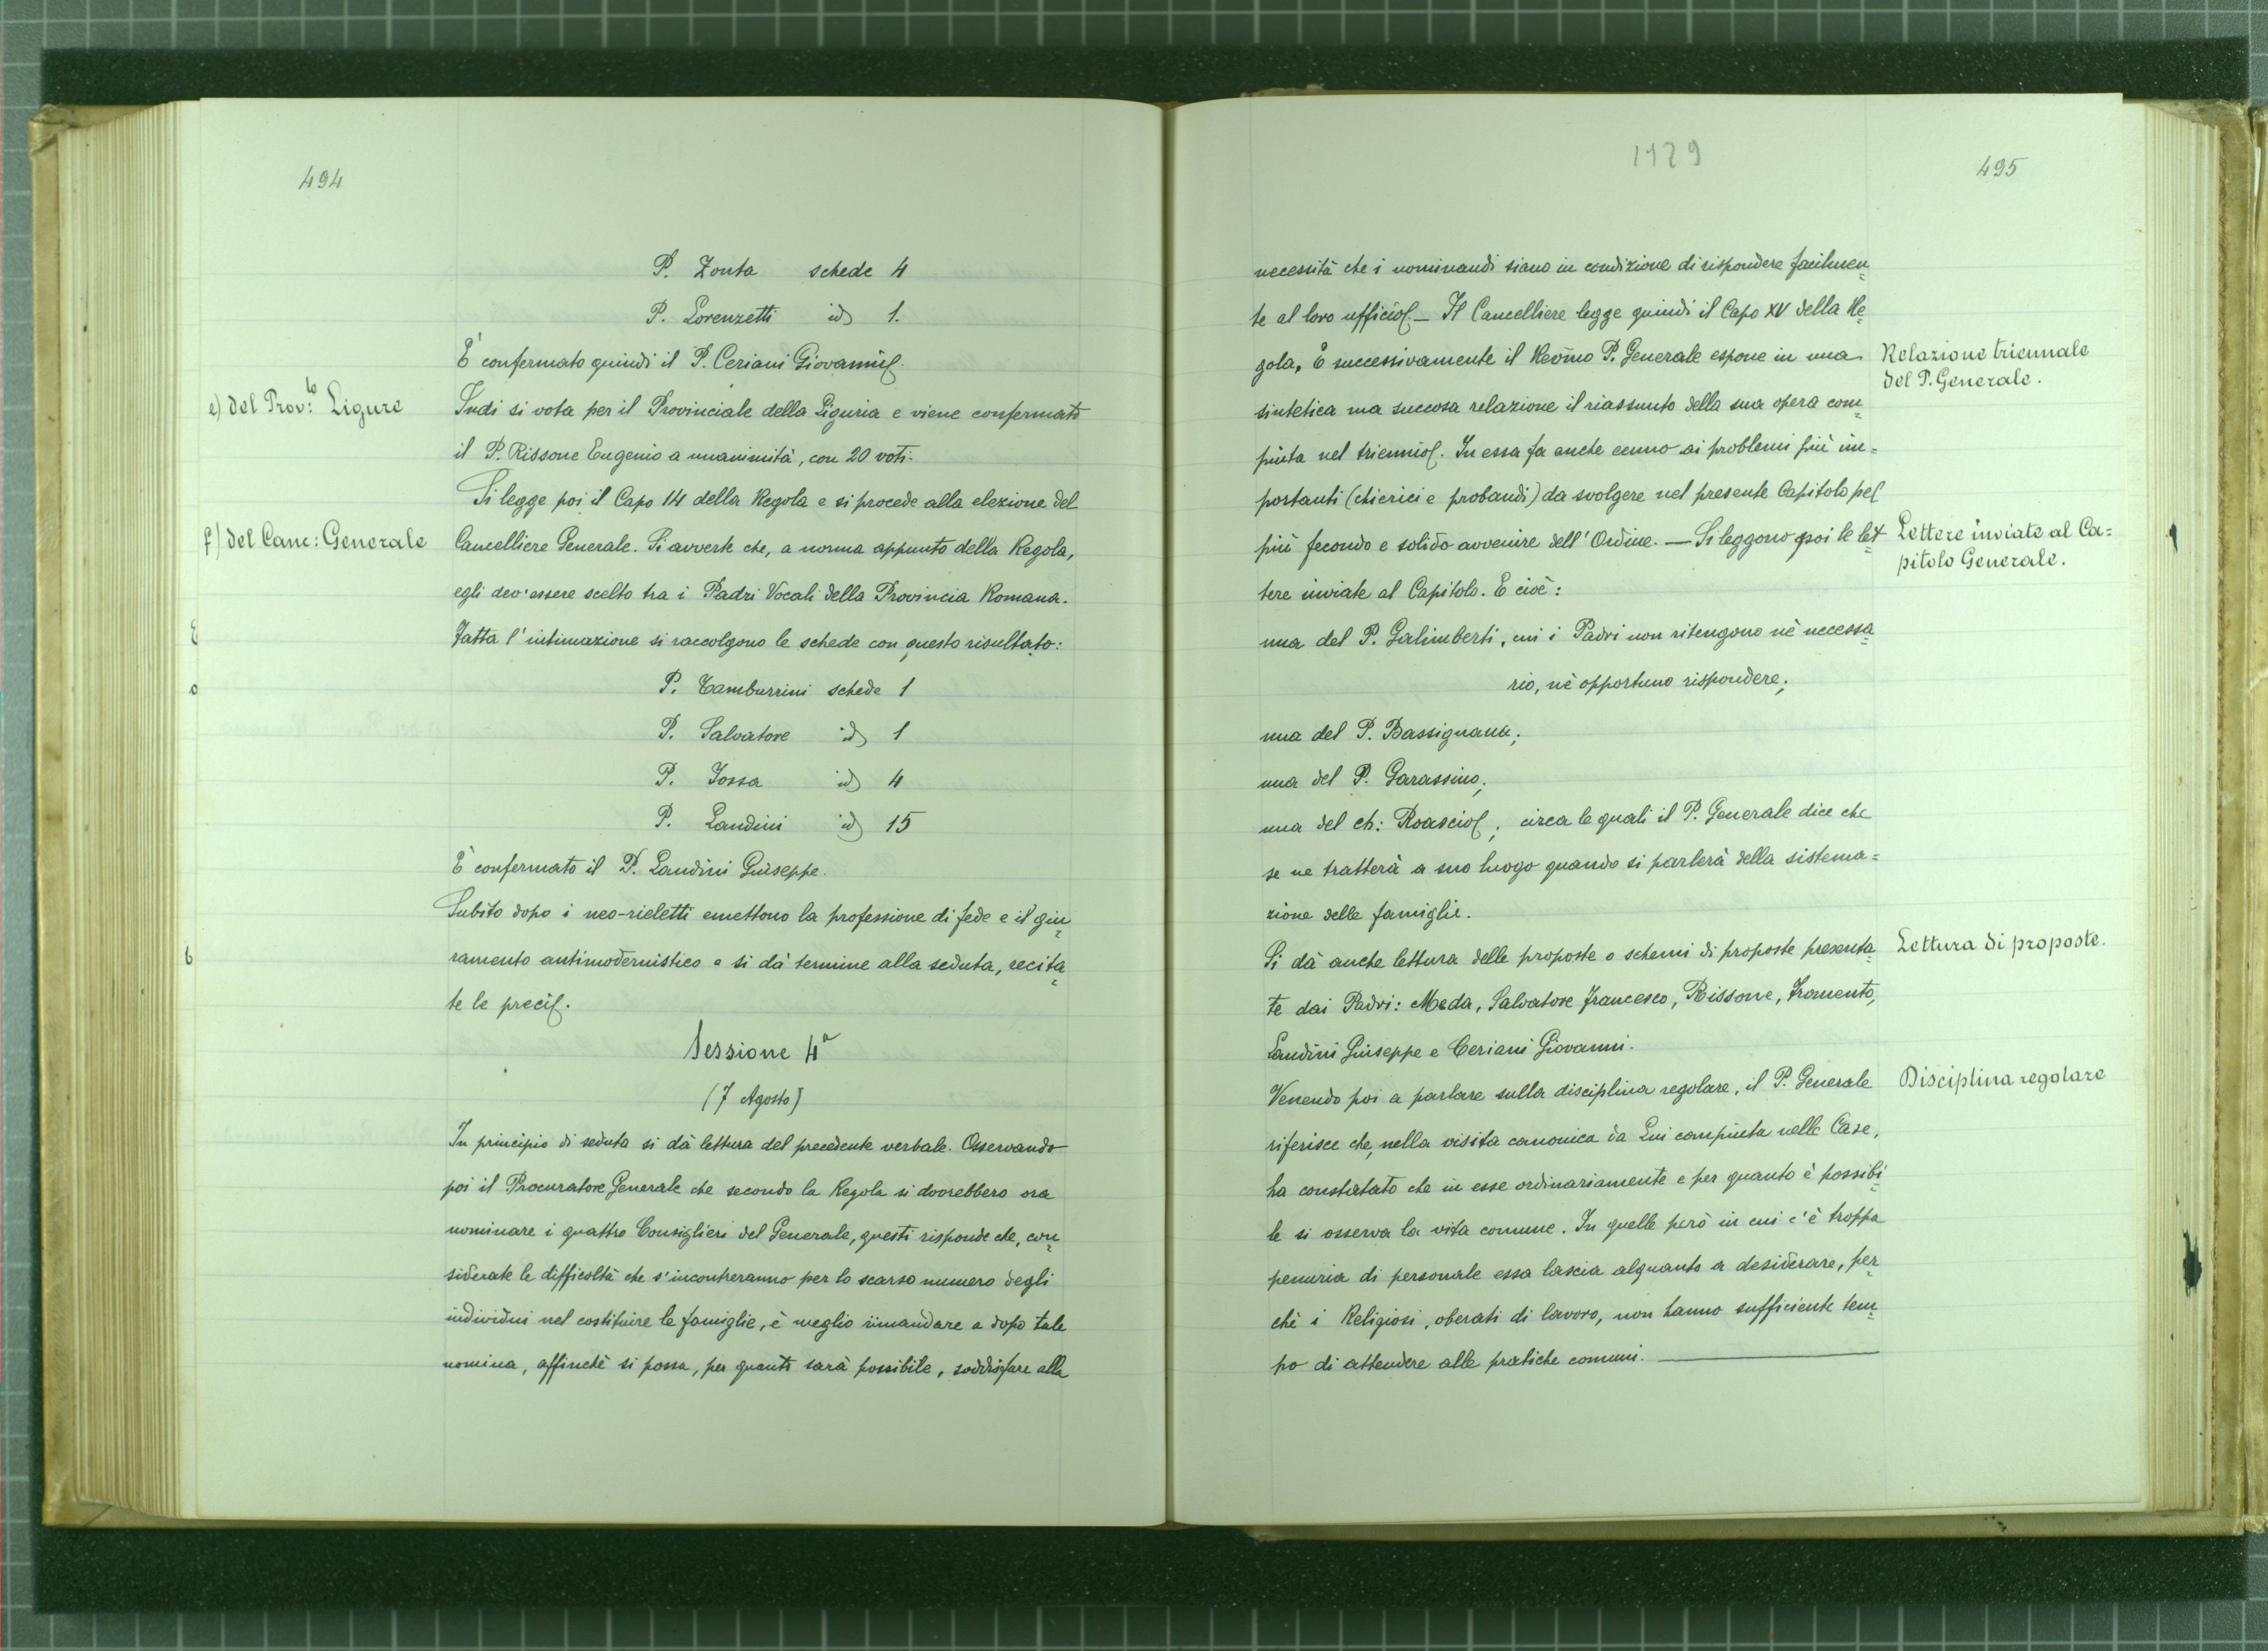 494
P. Zonta schede 4
P. Lorenzetti id 1.
È confermato quindi il P. Ceriani Giovanni.
e) del Prov:to Ligure
Indi si vota per il Provinciale della Liguria e viene confermato
il P. Rissone Eugenio a unanimità, con 20 voti.
Si legge poi il Capo 14 della Regola e si procede alla elezione del
f) del Canc: Generale
Cancelliere Generale. Si avverte che, a norma appunto della Regola,
egli dev'essere scelto tra i Padri Vocali della Provincia Romana.
Fatta l'intimazione si raccolgono le schede con questo risultato:
P. Tamburrini schede 1
P. Salvatore id 1
P. Fossa id 4
P. Landini id 15
È confermato il P. Landini Giuseppe.
Subito dopo i neo-rieletti emettono la professione di fede e il giu=
ramento antimodernistico e si dà termine alla seduta, recita=
te le preci.
Sessione 4ª
(7 Agosto)
In principio di seduta si dà lettura del precedente verbale. Osservando
poi il Procuratore Generale che secondo la Regola si dovrebbero ora
nominare i quattro Consiglieri del Generale, questi risponde che, con=
siderate le difficoltà che s'incontreranno per lo scarso numero degli
individui nel costituire le famiglie, è meglio rimandare a dopo tale
nomina, affinchè si possa, per quanto sarà possibile, soddisfare alla
1129
495
necessità che i nominandi siano in condizione di rispondere facilmen=
te al loro ufficio. — Il Cancelliere legge quindi il Capo XV della Re=
gola, E successivamente il Rev̄mo P. Generale espone in una
Relazione triennale
del P. Generale.
sintetica ma succosa relazione il riassunto della sua opera com=
piuta nel triennio. In essa fa anche cenno ai problemi più im=
portanti (chierici e probandi) da svolgere nel presente Capitolo pel
più fecondo e solido avvenire dell'Ordine. — Si leggono poi le let=
Lettere inviate al Ca=
pitolo Generale.
tere inviate al Capitolo. E cioè:
una del P. Galimberti, cui i Padri non ritengono nè necessa=
rio, nè opportuno rispondere;
una del P. Bassignana;
una del P. Garassino;
una del ch: Roascio; circa le quali il P. Generale dice che
se ne tratterà a suo luogo quando si parlerà della sistema=
zione delle famiglie.
Si dà anche lettura delle proposte o schemi di proposte presenta=
Lettura di proposte.
te dai Padri: Meda, Salvatore Francesco, Rissone, Fromento,
Landini Giuseppe e Ceriani Giovanni.
Venendo poi a parlare sulla disciplina regolare, il P. Generale
Disciplina regolare
riferisce che, nella visita canonica da Lui compiuta nelle Case,
ha constatato che in esse ordinariamente e per quanto è possibi=
le si osserva la vita comune. In quelle però in cui c'è troppa
penuria di personale essa lascia alquanto a desiderare, per=
chè i Religiosi, oberati di lavoro, non hanno sufficiente tem=
po di attendere alle pratiche comuni. —